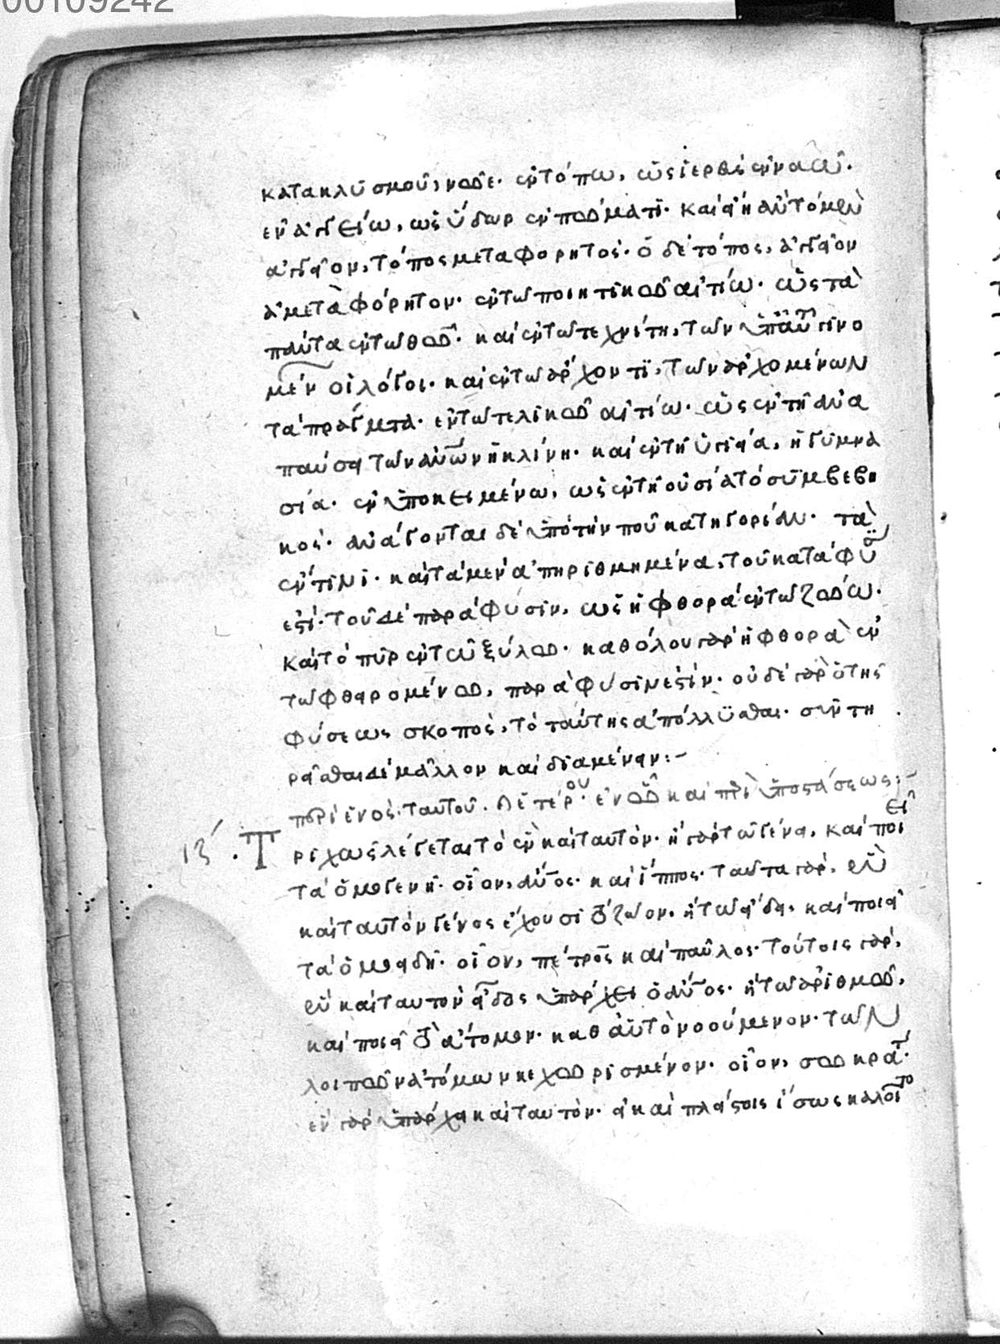 00109242
κατακλυσμοῦ, νῶε· ἐν τόπω, ὡς ἱερεὺς ἐν ναῶ·
ἐν ἀγγείω, ὡς ὕδωρ ἐν πώματι· καὶ
ἀγγεῖον, τόπος μεταφορητός· ὁ δὲ τόπος, ἀγγεῖον
ἀμετὰφόρητον· ἐν τῶ ποιητικῶ αἰτίω· ὡς τὰ
πάντα ἐν τῶ θεῶ· καὶ ἐν τῶ τεχνίτη, τῶν ὑπ' αὐτοῦ γινο
μένων οἱ λόγοι· καὶ ἐν τῶ ἄρχοντι, τῶν ἀρχομένων
τὰ πράγματα· ἐν τῶ τελικῶ αἰτίω· ὡς ἐν τῆ ἀνα
παύσει τῶν ἀνθρώπων ἡ κλίνη· καὶ ἐν τῆ ὑγιεία, ἡ γυμνα
σία· ἐν ὑποκειμένω, ὡς ἐν τῆ οὐσία τὸ συμβεβη
κός· ἀνάγονται δὲ ὑπὸ τὴν ποῦ κατηγορίαν· τὰ
ἔν τινι· καὶ τὰ μὲν ἀπηριθμημένα, τοῦ κατὰ φύσιν
ἐστί· τοῦ δὲ παρὰ φύσιν, ὡς ἡ φθορὰ ἐν τῶ ζώω·
καὶ τὸ πῦρ ἐν τῶ ξύλω· καθόλου γὰρ ἡ φθορὰ ἐν
τῶ φθαρομένω, παρὰ φύσιν ἐστίν· οὐδὲ γὰρ ὁ τῆς
φύσεως σκοπὸς, τὸ ταύτης ἀπόλλυσθαι· συντη
ρεῖσθαι δὲ μᾶλλον καὶ διαμένειν:-
περὶ ἑνὸς· ταυτοῦ· ἑτέρου· ἑνῶ καὶ περὶ ὑποστάσεως:-
ιβ΄. Τριχῶς λέγεται τὸ ἓν καὶ ταυτόν· ἢ γὰρ τῶ γένει, καὶ ποιεῖ
τὰ ὁμογενῆ· οἷον, ἄνθρωπος· καὶ ἵππος· ταῦτα γὰρ, ἓν
καὶ ταυτὸν γένος ἔχουσι τὸ ζῶον· ἢ τῶ εἴδει, καὶ ποιεῖ
τὰ ὁμοειδῆ· οἷον, πέτρος καὶ παῦλος· τούτοις γὰρ,
ἓν καὶ ταυτὸν εἶδος ὑπάρχει ὁ ἄνθρωπος· ἢ τῶ ἀριθμῶ,
καὶ ποιεῖ τὸ ἄτομον· καθ' αὑτὸ νοούμενον· τῶν
λοιπῶν ἀτόμων κεχωρισμένον· οἷον, σωκράτης·
ἓν γὰρ ὑπάρχει καὶ ταυτόν· εἰ καὶ πλείστοις ἴσως καλοῖτο